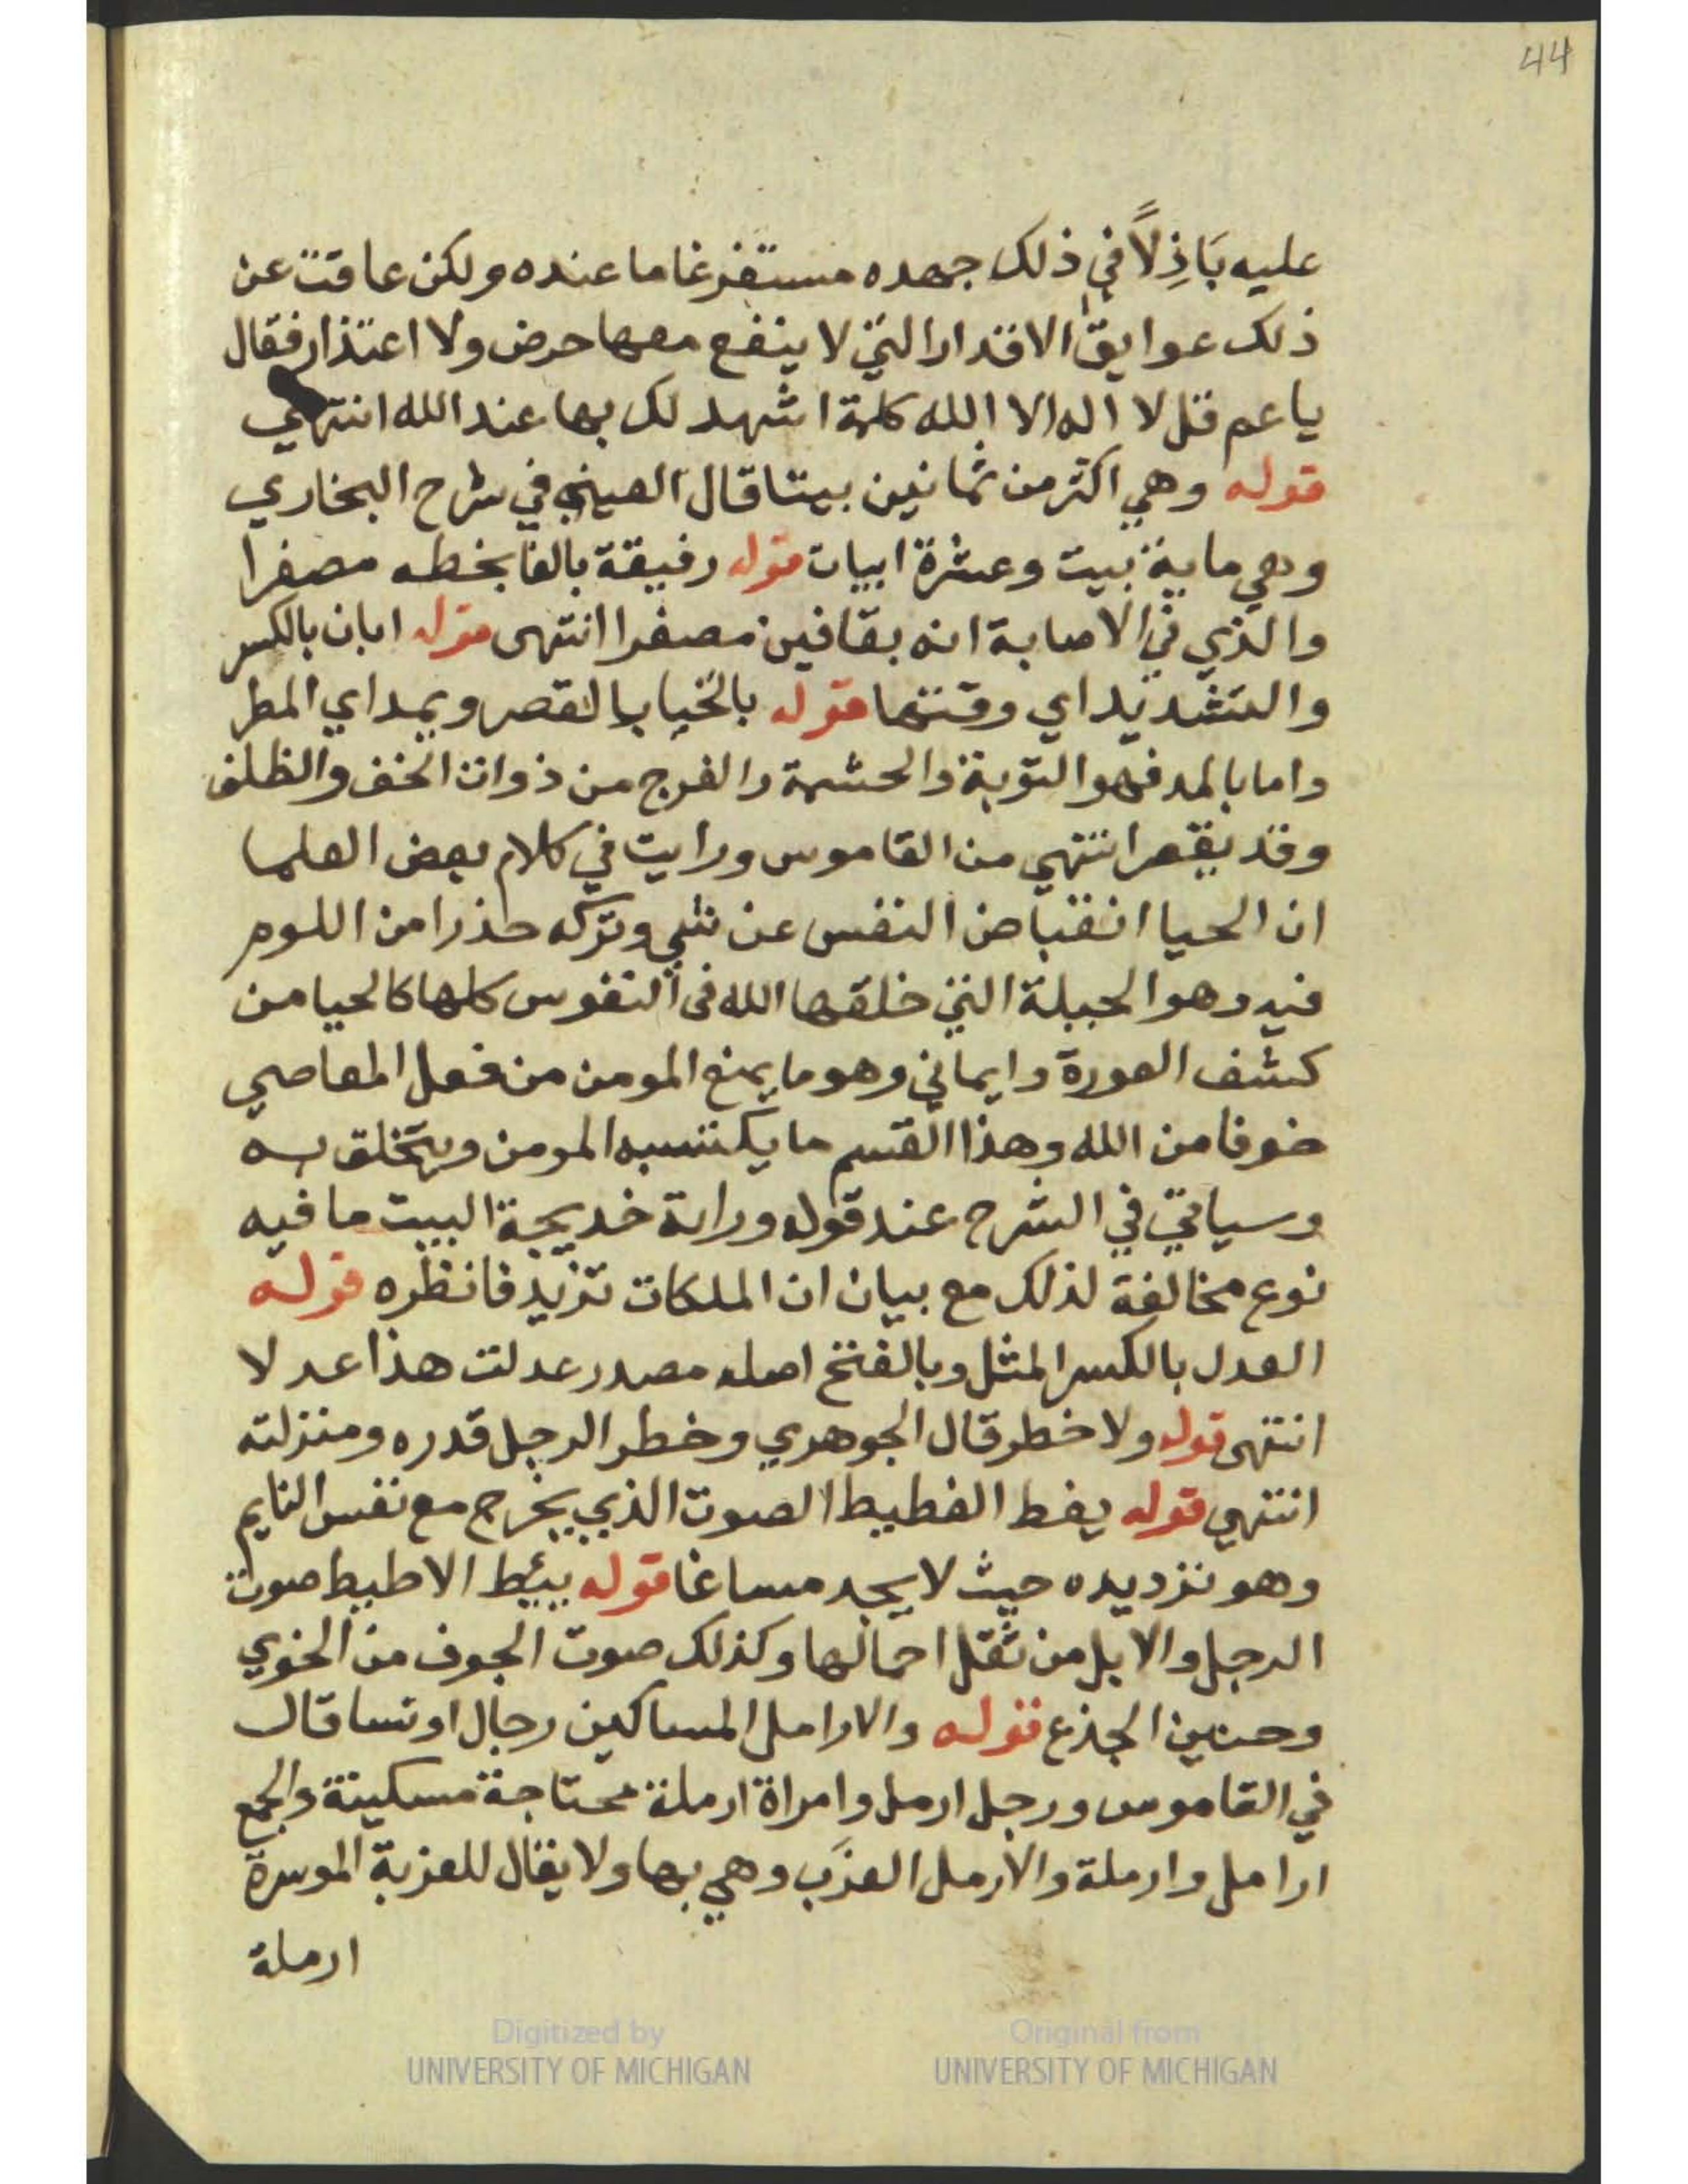 44
عليه بَاذِلاً في ذلك جهده مستفرغا ما عنده ولكن عاقت عن
ذلك عوايق الاقدار التي لا ينفع معها حرض ولا اعتذار فقال
يا عم قل لا اله الا الله كلمة اشهد لك بها عند الله انتهي
قوله وهي اكثر من ثمانين بيتا قال العيني في شرح البخاري
وهي ماية بيت وعشرة ابيات قوله رفيقة بالفا بخطه مصغرا
والذي في الاصابة انه بقافين مصغرا انتهى قوله ابان بالكسر
والتشديد اي وقتها قوله بالحيا بالقصر ويمد اي المطر
واما بالمد فهو التوبة والحشمة والفرج من ذوات الخف والظلف
وقد يقصر انتهي من القاموس ورايت في كلام بعض العلما
ان الحيا انقباض النفس عن شي وتركه حذرا من اللوم
فيه وهو الجبلة التي خلقها الله في النفوس كلها كالحيا من
كشف العورة وايماني وهو ما يمنع المومن من فعل المعاصي
خوفا من الله وهذا القسم ما يكتسبه المومن ويتخلق به
وسياتي في الشرح عند قوله وراته خديجة البيت ما فيه
نوع مخالفة لذلك مع بيان ان الملكات تزيد فانظره قوله
العدل بالكسر المثل وبالفتح اصله مصدر عدلت هذا عدلا
انتهى قوله ولا خطر قال الجوهري وخطر الرجل قدره ومنزلته
انتهي قوله يغط الغطيط الصوت الذي يخرج مع نفس النايم
وهو ترديده حيث لا يجد مساغا قوله يئط الاطيط صوت
الرحل والابل من ثقل احمالها وكذلك صوت الجوف من الخوي
وحنين الجذع قوله والارامل المساكين رجال او نسا قال
في القاموس ورجل ارمل وامراة ارملة محتاجة مسكينة والجمع
ارامل وارملة والارمل العزَب وهي بها ولا يقال للعزبة الموسرة
ارملة
Digitized by
UNIVERSITY OF MICHIGAN
Original from
UNIVERSITY OF MICHIGAN